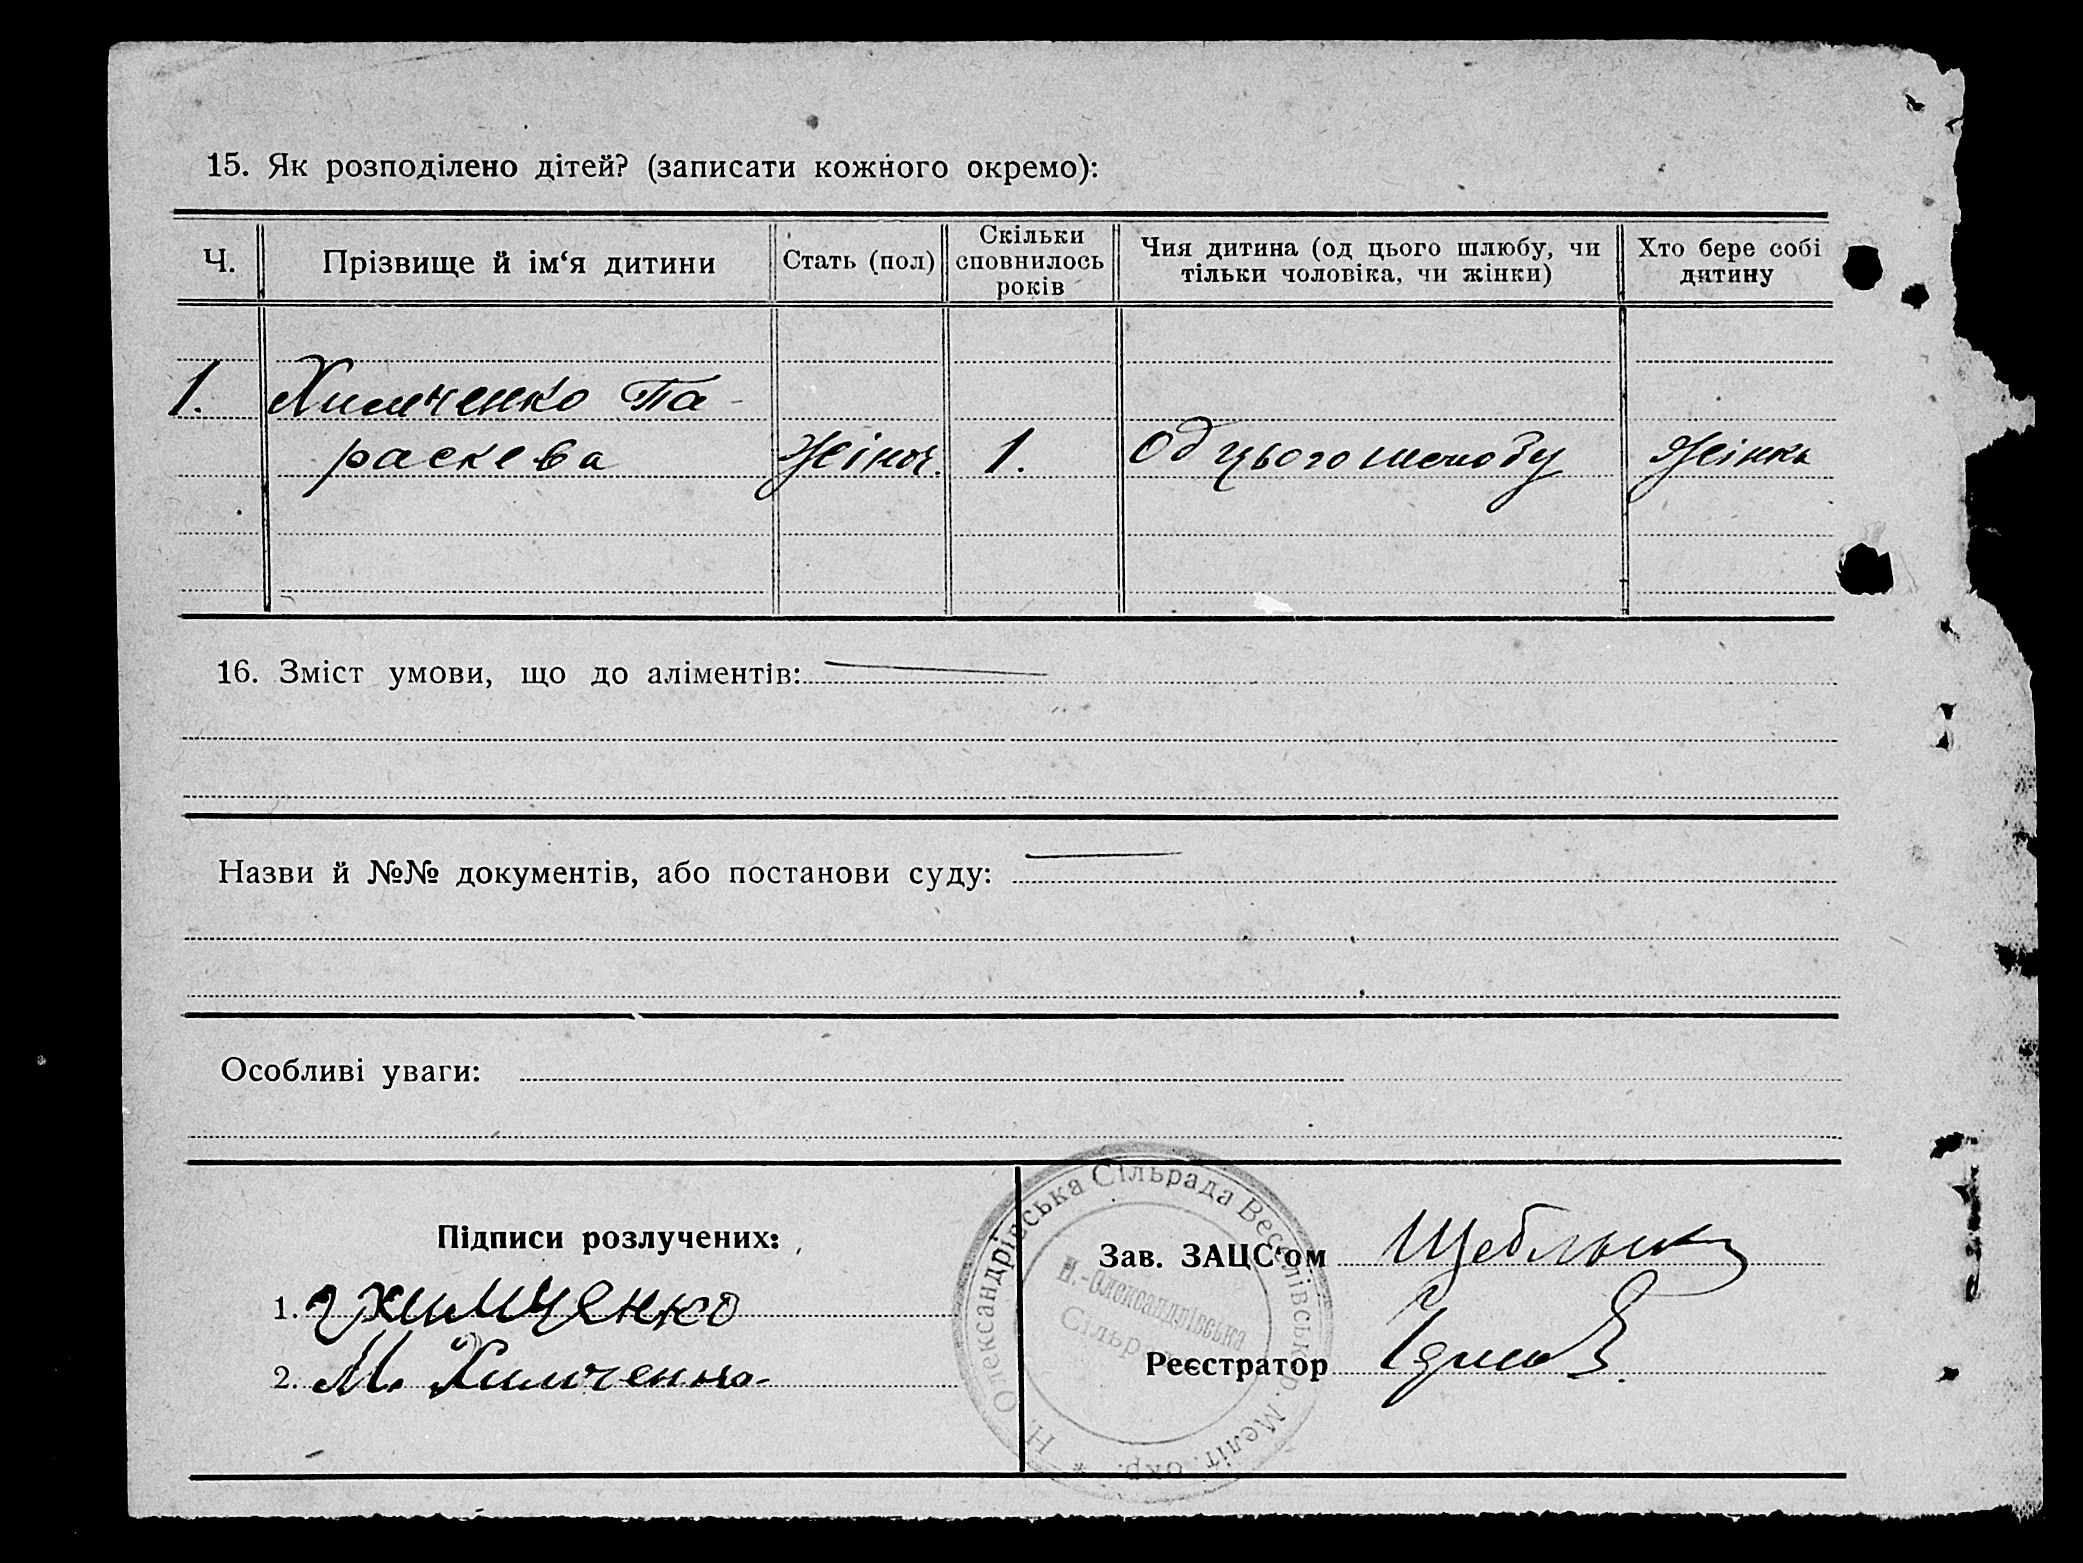 15. Як розподілено дітей? (записати кожного окремо):
Ч. Прізвище й ім‘я дитини Стать (пол) Скільки сповнилось років Чия дитина (од цього шлюбу, чи тільки чоловіка, чи жінки) Хто бере собі дитину
1. Химченко Па-
раскева Жіноч. 1. Од цього шлюбу Жінка
16. Зміст умови, що до аліментів:
Назви й №№ документів, або постанови суду:
Особливі уваги:
Підписи розлучених:
1. Химченко
2. М. Химченко
Зав. ЗАЦС‘ом
Реєстратор
Н. Олександрівська Сільрада Веселівськ. р. Меліт. окр. *
Н.-Олександрівська
Сільр